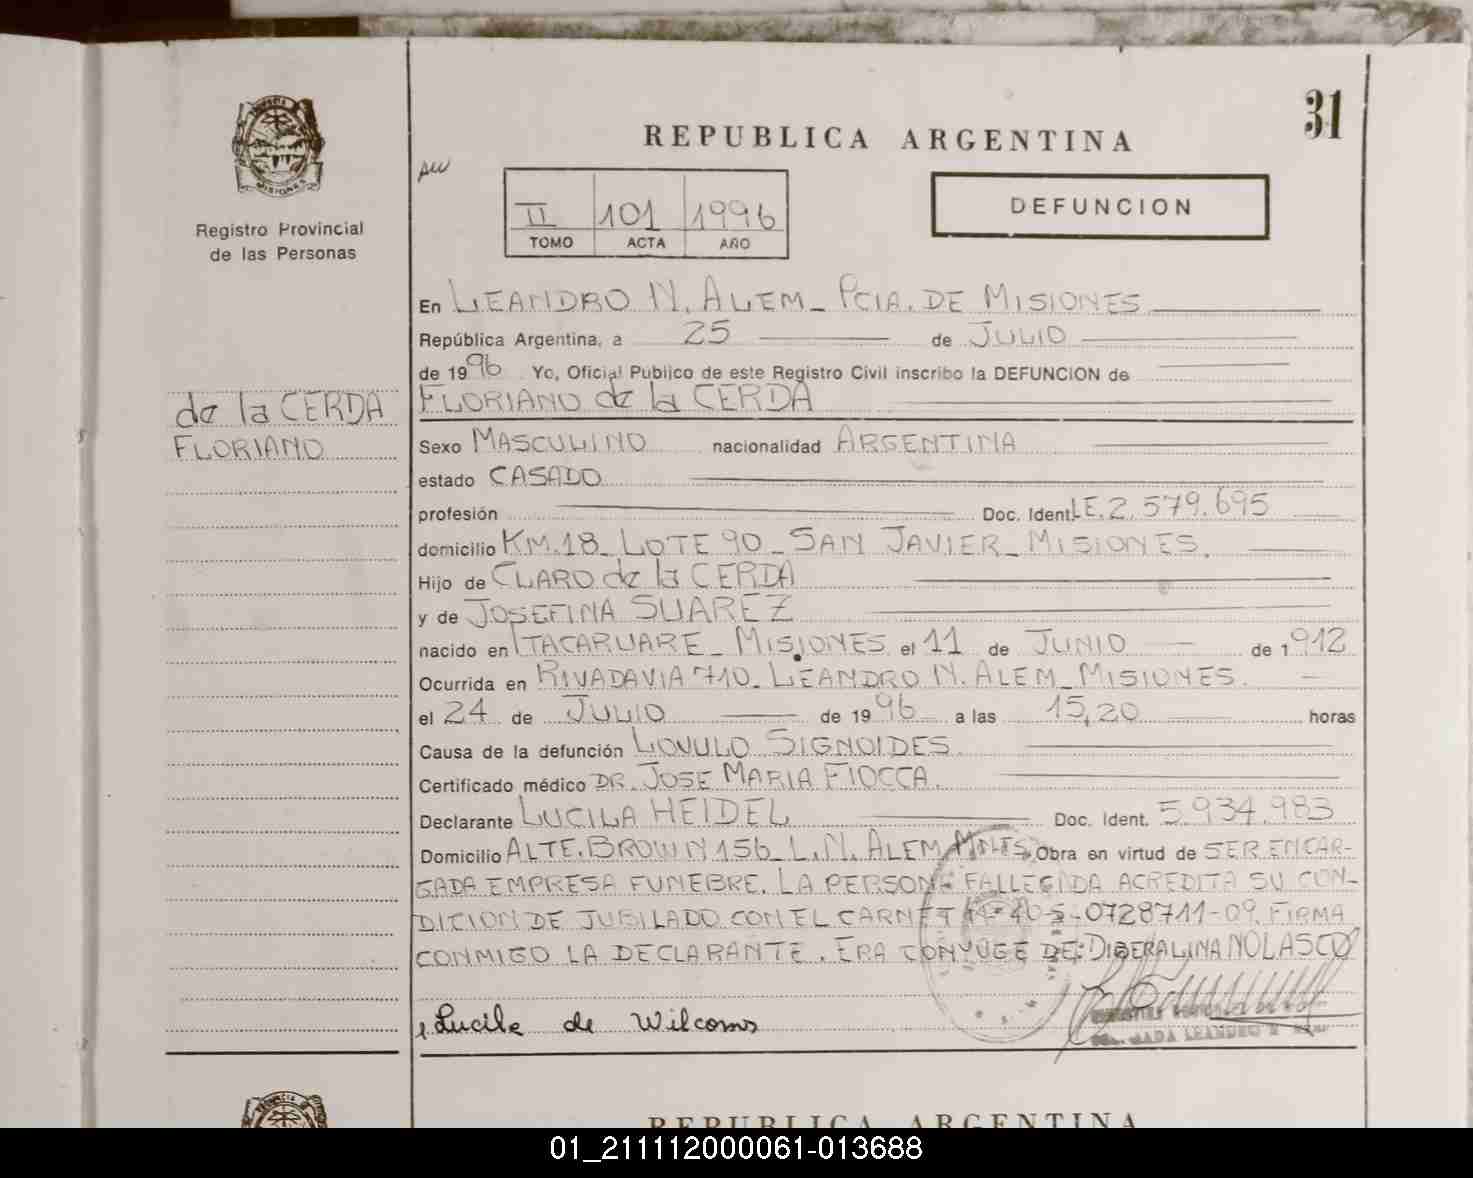 31
REPUBLICA ARGENTINA
PROVINCIA DE
MISIONES
Registro Provincial
de las Personas
II 101 1996
TOMO ACTA AÑO
DEFUNCION
En LEANDRO N. ALEM - PCIA. DE MISIONES
República Argentina, a 25 de JULIO
de 1996 Yo, Oficial Publico de este Registro Civil inscribo la DEFUNCION de
de la CERDA
FLORIANO
FLORIANO de la CERDA
Sexo MASCULINO nacionalidad ARGENTINA
estado CASADO
profesión Doc. Ident. LE. 2.579.695
domicilio KM.18 - LOTE 90 - SAN JAVIER - MISIONES.
Hijo de CLARO de la CERDA
y de JOSEFINA SUAREZ
nacido en ITACARUARE - MISIONES el 11 de JUNIO de 1912
Ocurrida en RIVADAVIA 710 - LEANDRO N. ALEM - MISIONES.
el 24 de JULIO de 1996 a las 15,20 horas
Causa de la defunción LOVULO SIGNOIDES.
Certificado médico DR. JOSE MARIA FIOCCA.
Declarante LUCILA HEIDEL Doc. Ident. 5.934.983
Domicilio ALTE. BROWN 156 - L.N. ALEM MNES. Obra en virtud de SER ENCAR-
GADA EMPRESA FUNEBRE. LA PERSONA FALLECIDA ACREDITA SU CON-
DICION DE JUBILADO CON EL CARNET 0728711-09. FIRMA
CONMIGO LA DECLARANTE. ERA CONYUGE DE: DIBERALINA NOLASCO
Lucila de Wilcoms
REPUBLICA ARGENTINA
01_211112000061-013688